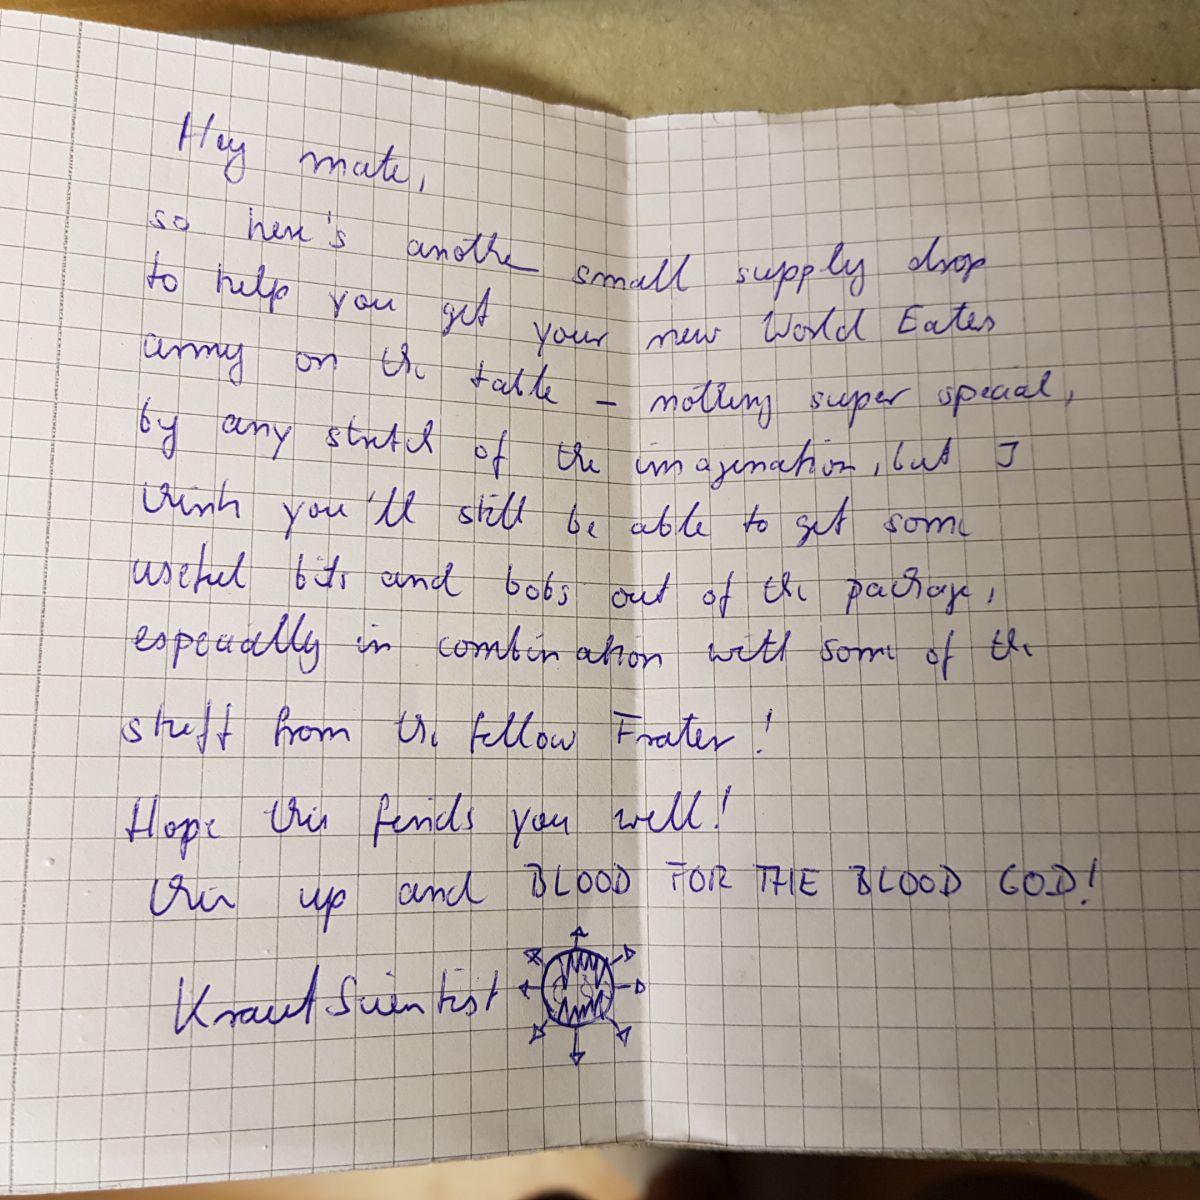 Hey mate,
so here's another small supply drop
to help you get your new World Eaters
army on the table – nothing super special,
by any stretch of the imagination, but I
think you'll still be able to get some
useful bits and bobs out of the package,
especially in combination with some of the
stuff from the fellow Frater!
Hope this finds you well!
Chin up and BLOOD FOR THE BLOOD GOD!
KrautScientist